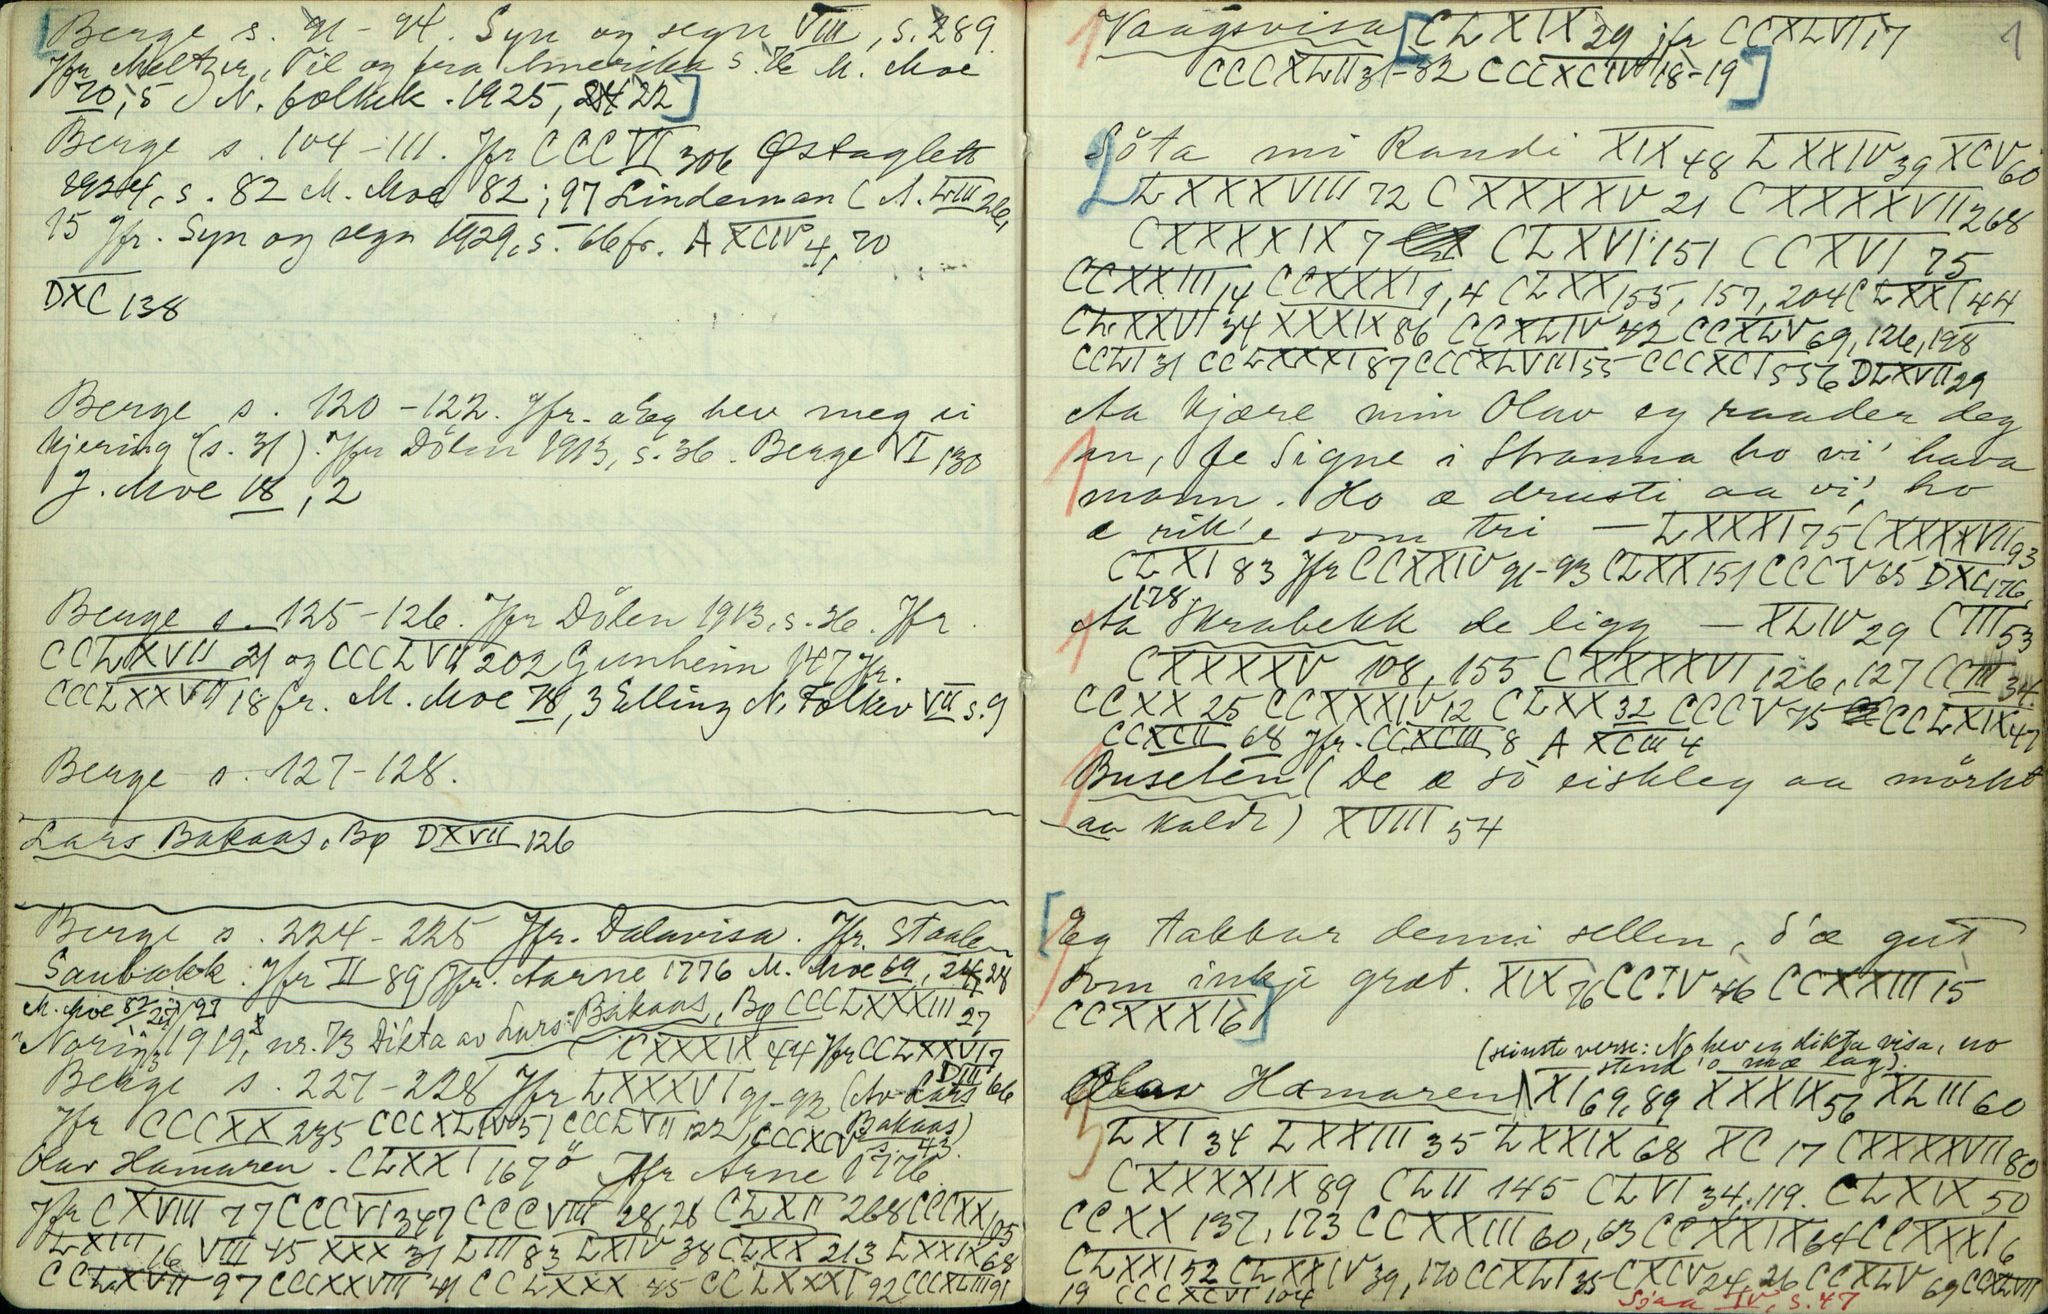 Berge s. 91-94. Syn og segn VIII, s. 289.
Jfr Meltzer, Til og fra Amerika s. M. Moe
70, 5 N. folkek. 1925, 22
Berge s. 104-111. Jfr CCCVI 306 Østaglett
1924, s. 82 M. Moe 82; 97 Lindeman (A. LIII
15 Jfr. Syn og segn 1929, s. 66 fr. A XCIV 4, 70
DXC 138
Berge s. 120-122. Jfr. Eg hev meg ei
kjering (s. 31). Jfr Dölen 1913, s. 36. Berge VI 130
J. Moe 18, 2
Berge s. 125-126. Jfr Dölen 1913, s. 36. Jfr.
CCLXVII 21 og CCCLVII 202 Gunheim 147 Jfr.
CCCLXXVII 18 fr. M. Moe 78, 3 Elling N. Folkev VII s. 9
Berge s. 127-128.
Lars Bakaas, Bø DXVII 126
Berge s. 224-225 Jfr. Dalavisa. Jfr. Staale
Saubakk. Jfr II 89 Jfr. Aarne 1776 M. Moe 69, 28
M. Moe 82
"Norig" 1919, nr. 73 Dikta av Lars Bakaas, Bø CCCLXXXIII 27
CXXXIX 44 Jfr CCLXXVI 7
Berge s. 227-228 Jfr LXXXVI 91-92 (Av Lars DIII 66
Bakaas)
Jfr CCCXX 235 CCCXLIV 51 CCCLVII 122, CCCXCV s. 43
Olav Hamaren. CLXXI 167 Jfr Arne 1776
Jfr CXVIII 77 CCCVI 347 CCCVIII 28, 28 CLXII 268 CCCXX 105
LXIII 16 VIII 45 XXX 31 LIII 83 LXIV 38 CLXX 213 LXXIX 68
CCLXVII 97 CCCXXVIII 41 CCLXXX 45 CCLXXXI 92 CCCXLIII 91
1
Vaagsvisa [CLXIX 29 jfr CCXLVI 17
CCCXLII 31-82 CCCXCIV 18-19]
2 Söta mi Randi XIX 48 LXXIV 39 XCV 60
LXXXVIII 72 CXXXXV 21 CXXXXVII 268
CXXXXIX 7 CLXVI 151 CCXVI 75
CCXXIII 14 CCXXXI 1, 4 CLXX 155, 157, 204 CLXXI 44
CLXXVI 34 XXXIX 86 CCXLIV 42 CCXLV 69, 126, 198
CCLI 31 CCLXXXI 87 CCCXLVIII 55 CCCXCI 556 DLXVII 29
Aa kjære min Olav eg raader deg
an, fe Signe i Stranna ho vi' hava
mann. Ho æ drusti aa vi', ho
æ rik'e som tri — LXXXI 75 CXXXXVII 93
CLXI 83 Jfr CCXXIV 91-93 CLXX 151 CCCV 65 DXC 176,
178.
Aa Skrabekk de ligg — XLIV 29 CIII 53
CXXXXV 108, 155 CXXXXVI 126, 127 CCIII 34.
CCXX 25 CCXXXIV 12 CLXX 32 CCCV 75 CCLXIX 47
CCXCII 68 Jfr. CCXCIII 8 A XCIII 4
Buseten (De æ so eiskleg aa mörkt
aa kaldt) XVIII 54
[Eg takkar denni sellen, d'æ gut
som inkje græt. XIX 76 CCIV 46 CCXXIII 15
CCXXXI 6]
(seinste verse: No hev eg dikta visa, no
stend 'o mæ lag).
5 Olav Hamaren XI 69, 89 XXXIX 56 XLIII 60
LXI 34 LXXIII 35 LXXIX 68 XC 17 CXXXXVII 80
CXXXXIX 89 CLII 145 CLVI 34, 119. CLXIX 50
CCXX 137, 173 CCXXIII 60, 63 CCXXIX 64 CCXXXI 6
CLXXI 52 CLXXIV 39, 170 CCXLI 35 CXCV 24, 26 CCXLV 69 CCXLVII
19 CCCXCVI 104 Sjaa IV, s. 47